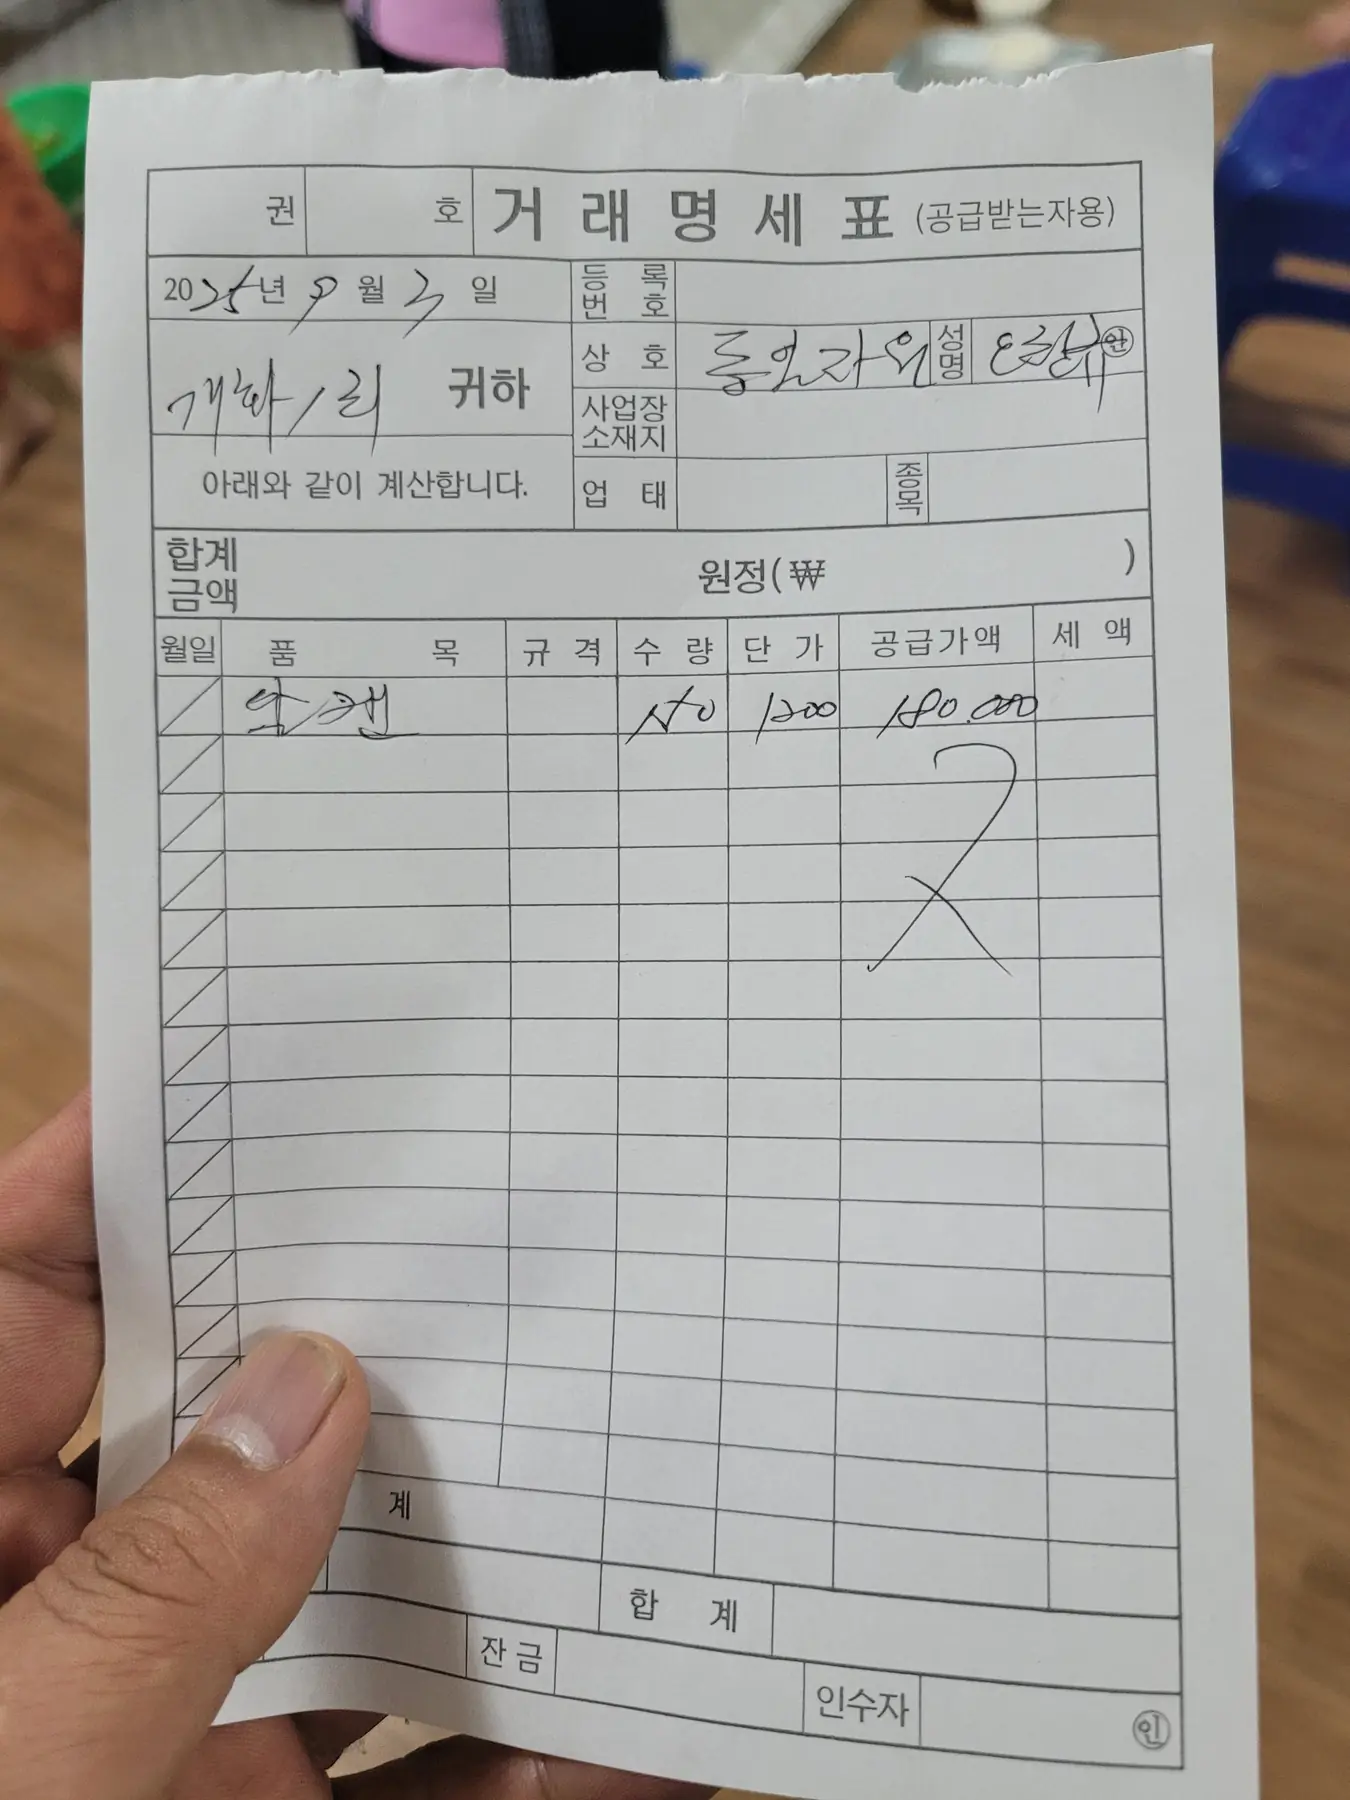 권 호 거래명세표 (공급받는자용)
2025년 9월 3일
등록번호
개화1리 귀하
상호 통일자원 성명 인
사업장소재지
아래와 같이 계산합니다.
업태 종목
합계금액 원정(₩ )
월일 품목 규격 수량 단가 공급가액 세액
알캔 150 1200 180.000
계
합계
잔금
인수자 인